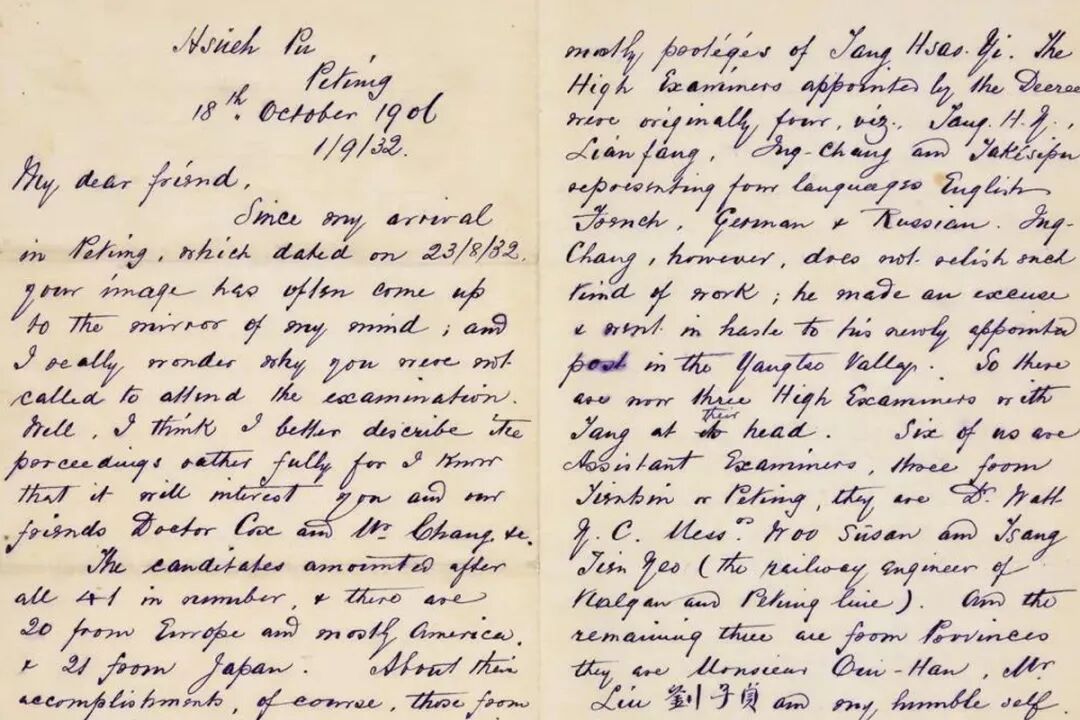 Hsüeh Pu
Peking
18th October 1906
1/9/32.
My dear friend,
Since my arrival
in Peking, which dated on 23/8/32,
your image has often come up
to the mirror of my mind; and
I really wonder why you were not
called to attend the examination.
Well, I think I better describe the
porceedings rather fully for I know
that it will interest you and our
friends Doctor Cox and Mr. Chang &c.
The canditates amounted after
all 41 in number, & there are
20 from Europe and mostly America,
& 21 from Japan. About their
accomplishments, of course, those from
mostly protégés of Tang Hsao-Yi. The
High Examiners appointed by the Decree
were originally four, viz., Tang. H.Y.,
Lian fang, Ing-Chang and Takisipu
representing four languages English
French, German & Russian. Ing-
Chang, however, does not relish such
kind of work; he made an excuse
& went in haste to his newly appointed
post in the Yangtse Valley. So there
are now three High Examiners with
Tang at their head. Six of us are
Assistant Examiners, three from
Tientsin or Peking, they are Dr. Watt
Y. C. Messrs Woo Susan and Tsang
Tien Yeo (the railway engineer of
Kalgan and Peking line). And the
remaining three are from Provinces
they are Monsieur Oui-Han, Mr.
Liu 劉子貞 and my humble self.